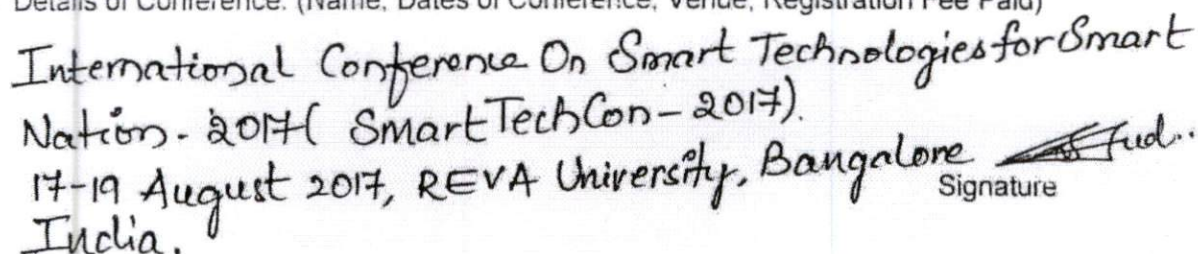 Details of Conference: (Name, Dates of Conference, Venue, Registration Fee Paid)
International Conference On Smart Technologies for Smart
Nation - 2017( SmartTechCon - 2017).
17-19 August 2017, REVA University, Bangalore
Signature
India.